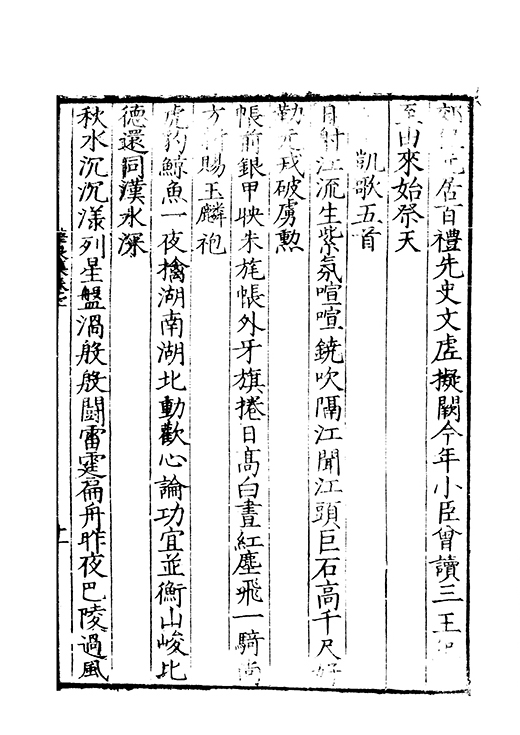 郊祀元居百禮先史文虚擬闕今年小臣曾讀三王
至由來始祭天
凱歌五首
日射江流生紫氛喧喧鐃吹隔江聞江頭巨石高千尺好
勒元戎破虜勲
帳前銀甲映朱旄帳外牙旗捲日髙白晝紅塵飛一騎尚
方新賜玉麟袍
虎豹鯨魚一夜擒湖南湖北動歡心論功宜並衡山峻比
德還同漢水深
秋水沉沉漾列星盤渦般般鬬雷霆扁舟昨夜巴陵過風
十一